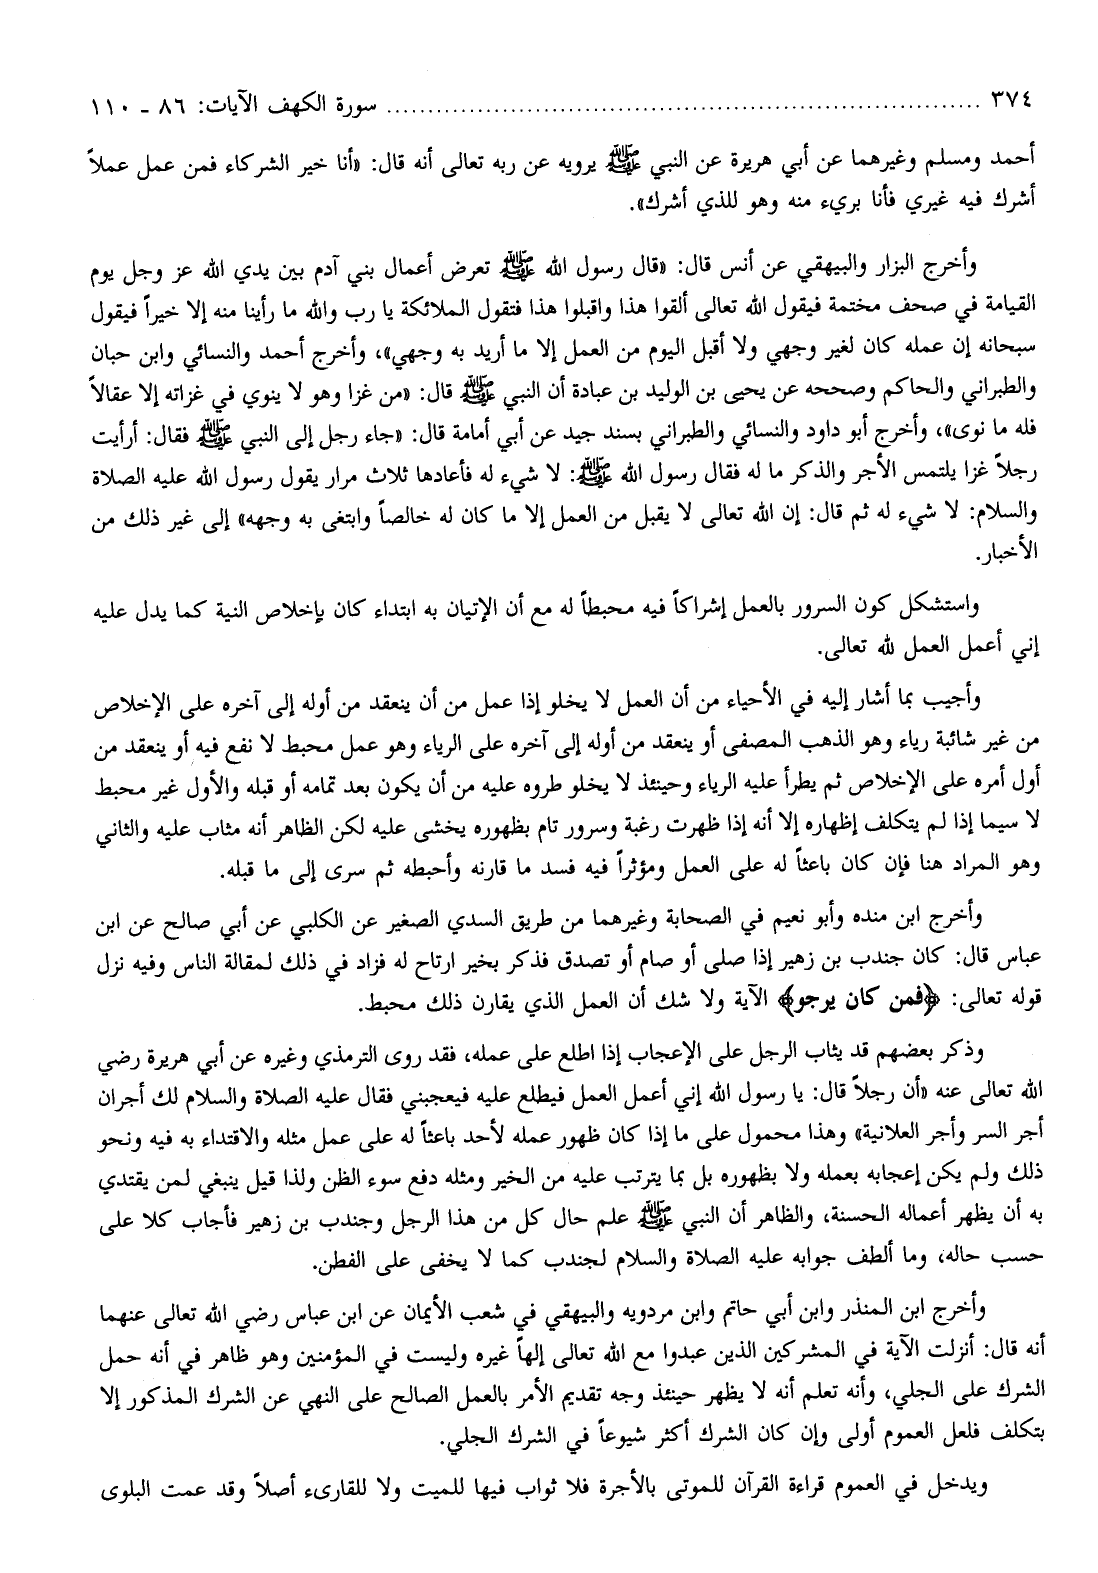 ٣٧٤ ........................................................................ سورة الكهف الآيات: ٨٦ - ١١٠
أحمد ومسلم وغيرهما عن أبي هريرة عن النبي ﷺ يرويه عن ربه تعالى أنه قال: «أنا خير الشركاء فمن عمل عملاً
أشرك فيه غيري فأنا بريء منه وهو للذي أشرك».
وأخرج البزار والبيهقي عن أنس قال: «قال رسول الله ﷺ تعرض أعمال بني آدم بين يدي الله عز وجل يوم
القيامة في صحف مختمة فيقول الله تعالى ألقوا هذا واقبلوا هذا فتقول الملائكة يا رب والله ما رأينا منه إلا خيراً فيقول
سبحانه إن عمله كان لغير وجهي ولا أقبل اليوم من العمل إلا ما أريد به وجهي»، وأخرج أحمد والنسائي وابن حبان
والطبراني والحاكم وصححه عن يحيى بن الوليد بن عبادة أن النبي ﷺ قال: «من غزا وهو لا ينوي في غزاته إلا عقالاً
فله ما نوى»، وأخرج أبو داود والنسائي والطبراني بسند جيد عن أبي أمامة قال: «جاء رجل إلى النبي ﷺ فقال: أرأيت
رجلاً غزا يلتمس الأجر والذكر ما له فقال رسول الله ﷺ: لا شيء له فأعادها ثلاث مرار يقول رسول الله عليه الصلاة
والسلام: لا شيء له ثم قال: إن الله تعالى لا يقبل من العمل إلا ما كان له خالصاً وابتغى به وجهه» إلى غير ذلك من
الأخبار.
واستشكل كون السرور بالعمل إشراكاً فيه محبطاً له مع أن الإتيان به ابتداء كان بإخلاص النية كما يدل عليه
إني أعمل العمل لله تعالى.
وأجيب بما أشار إليه في الأحياء من أن العمل لا يخلو إذا عمل من أن ينعقد من أوله إلى آخره على الإخلاص
من غير شائبة رياء وهو الذهب المصفى أو ينعقد من أوله إلى آخره على الرياء وهو عمل محبط لا نفع فيه أو ينعقد من
أول أمره على الإخلاص ثم يطرأ عليه الرياء وحينئذ لا يخلو طروه عليه من أن يكون بعد تمامه أو قبله والأول غير محبط
لا سيما إذا لم يتكلف إظهاره إلا أنه إذا ظهرت رغبة وسرور تام بظهوره يخشى عليه لكن الظاهر أنه مثاب عليه والثاني
وهو المراد هنا فإن كان باعثاً له على العمل ومؤثراً فيه فسد ما قارنه وأحبطه ثم سرى إلى ما قبله.
وأخرج ابن منده وأبو نعيم في الصحابة وغيرهما من طريق السدي الصغير عن الكلبي عن أبي صالح عن ابن
عباس قال: كان جندب بن زهير إذا صلى أو صام أو تصدق فذكر بخير ارتاح له فزاد في ذلك لمقالة الناس وفيه نزل
قوله تعالى: ﴿فمن كان يرجو﴾ الآية ولا شك أن العمل الذي يقارن ذلك محبط.
وذكر بعضهم قد يثاب الرجل على الإعجاب إذا اطلع على عمله، فقد روى الترمذي وغيره عن أبي هريرة رضي
الله تعالى عنه «أن رجلاً قال: يا رسول الله إني أعمل العمل فيطلع عليه فيعجبني فقال عليه الصلاة والسلام لك أجران
أجر السر وأجر العلانية» وهذا محمول على ما إذا كان ظهور عمله لأحد باعثاً له على عمل مثله والاقتداء به فيه ونحو
ذلك ولم يكن إعجابه بعمله ولا بظهوره بل بما يترتب عليه من الخير ومثله دفع سوء الظن ولذا قيل ينبغي لمن يقتدي
به أن يظهر أعماله الحسنة، والظاهر أن النبي ﷺ علم حال كل من هذا الرجل وجندب بن زهير فأجاب كلا على
حسب حاله، وما ألطف جوابه عليه الصلاة والسلام لجندب كما لا يخفى على الفطن.
وأخرج ابن المنذر وابن أبي حاتم وابن مردويه والبيهقي في شعب الأيمان عن ابن عباس رضي الله تعالى عنهما
أنه قال: أنزلت الآية في المشركين الذين عبدوا مع الله تعالى إلهاً غيره وليست في المؤمنين وهو ظاهر في أنه حمل
الشرك على الجلي، وأنه تعلم أنه لا يظهر حينئذ وجه تقديم الأمر بالعمل الصالح على النهي عن الشرك المذكور إلا
بتكلف فلعل العموم أولى وإن كان الشرك أكثر شيوعاً في الشرك الجلي.
ويدخل في العموم قراءة القرآن للموتى بالأجرة فلا ثواب فيها للميت ولا للقارىء أصلاً وقد عمت البلوى